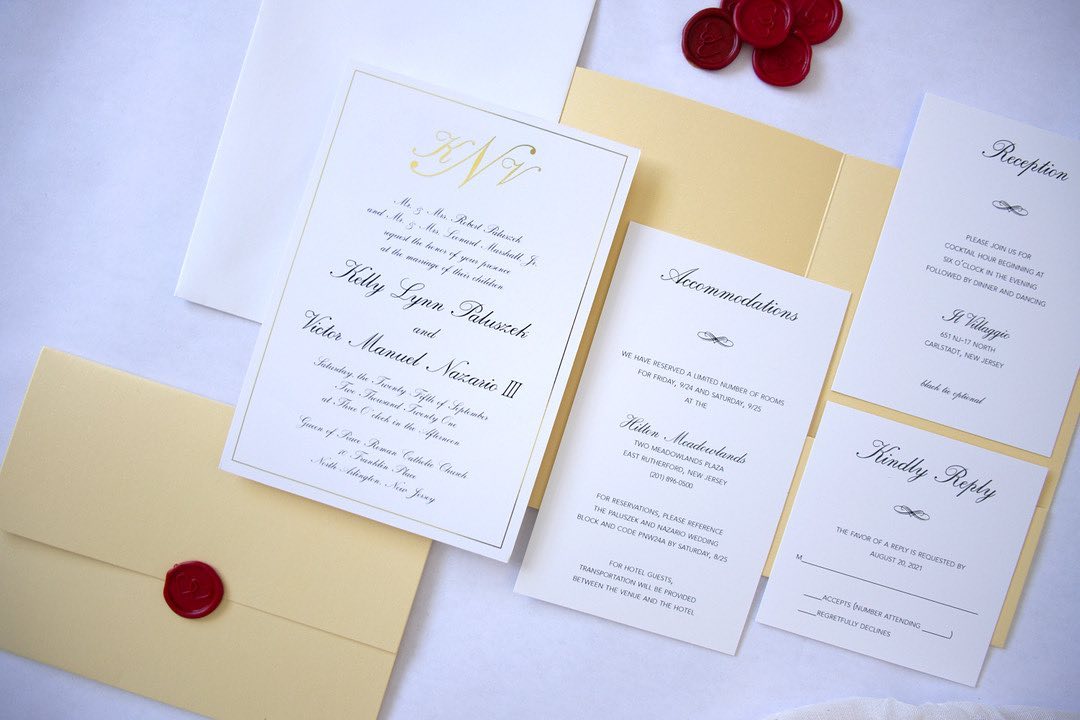 KNV
Mr. & Mrs. Robert Paluszek
and Mr. & Mrs. Leonard Marshall Jr.
request the honor of your presence
at the marriage of their children
Kelly Lynn Paluszek
and
Victor Manuel Nazario III
Saturday, the Twenty Fifth of September
Two Thousand Twenty One
at Three O'clock in the Afternoon
Queen of Peace Roman Catholic Church
10 Franklin Place
North Arlington, New Jersey
Accommodations
WE HAVE RESERVED A LIMITED NUMBER OF ROOMS
FOR FRIDAY, 9/24 AND SATURDAY, 9/25
AT THE
Hilton Meadowlands
TWO MEADOWLANDS PLAZA
EAST RUTHERFORD, NEW JERSEY
(201) 896-0500
FOR RESERVATIONS, PLEASE REFERENCE
THE PALUSZEK AND NAZARIO WEDDING
BLOCK AND CODE PNW24A BY SATURDAY, 8/25
FOR HOTEL GUESTS,
TRANSPORTATION WILL BE PROVIDED
BETWEEN THE VENUE AND THE HOTEL
Reception
PLEASE JOIN US FOR
COCKTAIL HOUR BEGINNING AT
SIX O'CLOCK IN THE EVENING
FOLLOWED BY DINNER AND DANCING
Il Villaggio
651 NJ-17 NORTH
CARLSTADT, NEW JERSEY
black tie optional
Kindly Reply
THE FAVOR OF A REPLY IS REQUESTED BY
AUGUST 20, 2021
M
___ACCEPTS (NUMBER ATTENDING ____)
___REGRETFULLY DECLINES